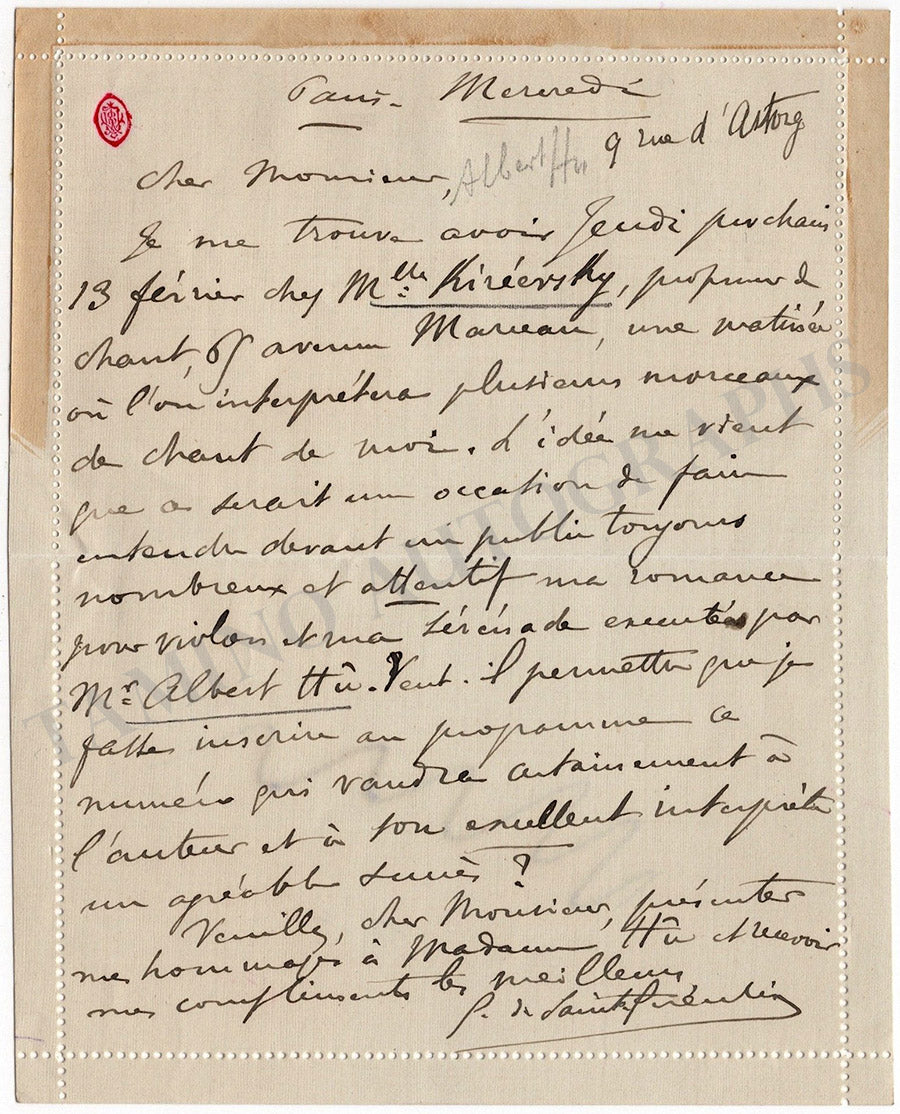 Paris - Mercredi
9 rue d'Astorg
Cher Monsieur, Albert Hu
Je me trouve avoir Jeudi prochain
13 février chez Mlle Kiréevsky, professeur de
chant, avenue Marceau, une matinée
où l'on interprétera plusieurs morceaux
de chant de moi. L'idée me vient
que ce serait une occation de faire
entendre devant un public toujours
nombreux et attentif ma romance
pour violon et ma sérénade executées par
Mr Albert Hû. Veut-il permettre que je
fasse inscrire au programme ce
numéro qui vaudra certainement à
l'auteur et à son excellent interprète
un agréable succès ?
Veuillez, cher Monsieur, présenter
mes hommages à Madame Hû et recevoir
mes compliments les meilleurs
G. de Saint Quentin
TAMINO AUTOGRAPHS